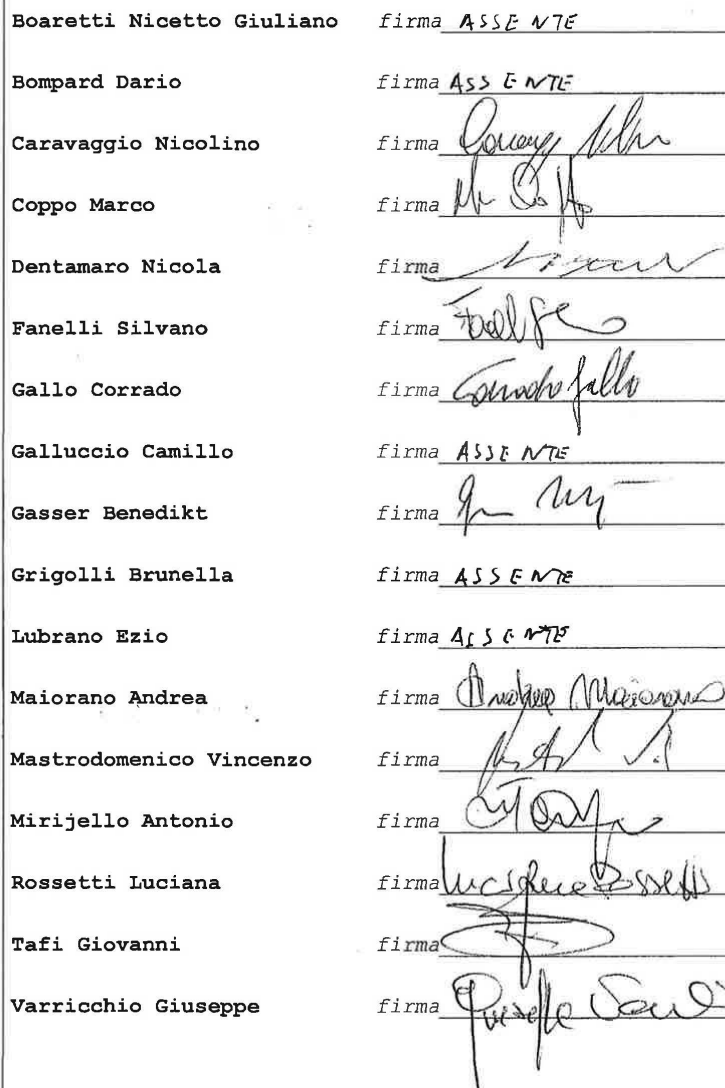 Boaretti Nicetto Giuliano firma ASSENTE
Bompard Dario firma ASSENTE
Caravaggio Nicolino firma
Coppo Marco firma
Dentamaro Nicola firma
Fanelli Silvano firma
Gallo Corrado firma Corrado Gallo
Galluccio Camillo firma ASSENTE
Gasser Benedikt firma
Grigolli Brunella firma ASSENTE
Lubrano Ezio firma ASSENTE
Maiorano Andrea firma Andrea Maiorano
Mastrodomenico Vincenzo firma
Mirijello Antonio firma
Rossetti Luciana firma Luciana Rossetti
Tafi Giovanni firma
Varricchio Giuseppe firma